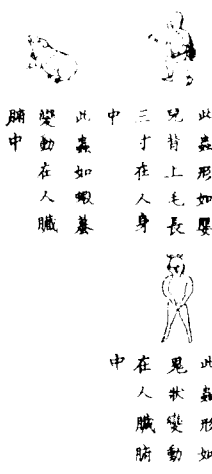 此蟲形如嬰
兒背上毛長
三寸在人身
中
此蟲如蝦蟇
變動在人臟
腑中
此蟲形如
鬼狀變動
在人臟腑
中